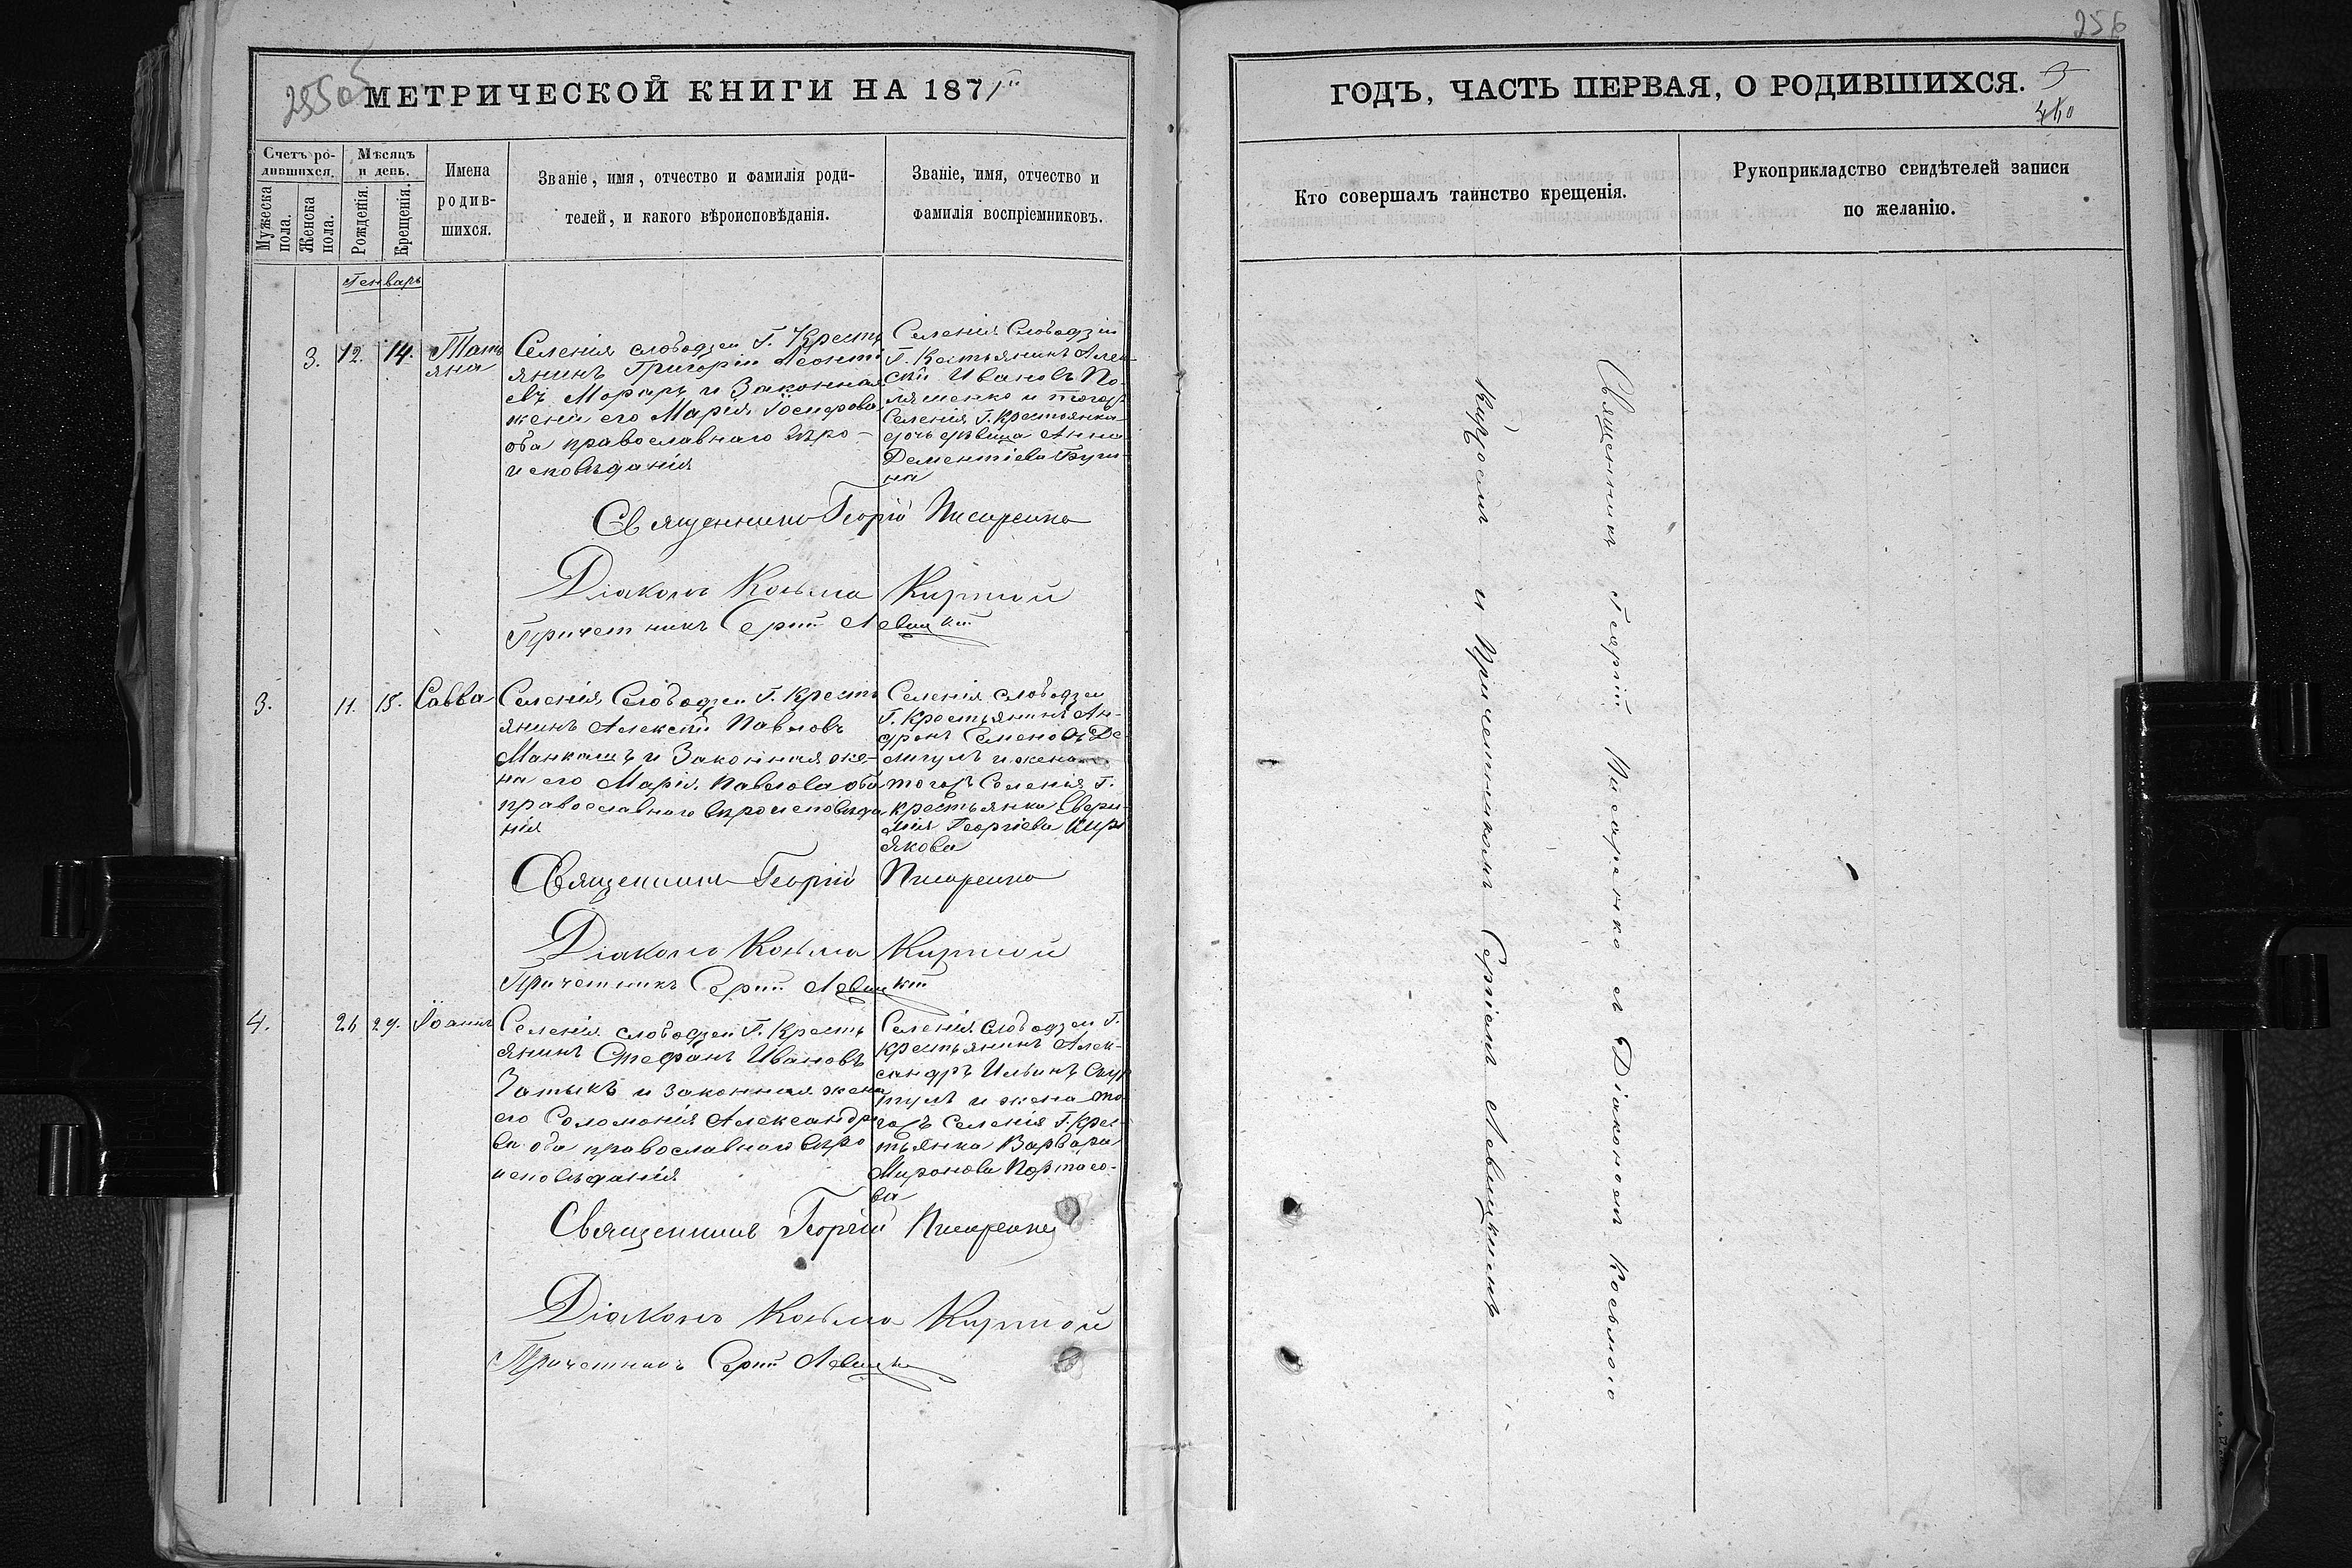 МЕТРИЧЕСКОЙ КНИГИ НА 1871
Счетъ ро-
дившихся.
Мужеска пола.
Женска пола.
Мѣсяцъ
и день.
Рожденія.
Крещенія.
Имена
родив-
шихся.
Званіе, имя, отчество и фамилія роди-
телей, и какого вѣроисповѣданія.
Званіе, имя, отчество и
фамилія воспріемниковъ.
Генварь
3. 12. 14.
Тать
яна
Селенія слободзеи Г. Кресть
янинъ Григорій Леонті
евъ Морарь и Законная
жена его Марія Іосифова
оба православнаго вѣро-
исповѣданія
Селенія Слободзеи
Г. Кестьянинъ Алек-
сѣй Ивановъ По-
ляшенко и тогоже
Селенія Г. Крестьянка
дочь дѣвица Анна
Дементіева
на
Священникъ Георгій Писаренко
Діаконъ Косьма Киржой
Причетникъ Сергій Левицкій
3. 11. 15. Савва
Селенія Слободзеи Г. Кресть
янинъ Алексѣй Павловъ
Манкашъ и Законная же-
на его Марія Павлова оба
православнаго вѣроисповѣда
нія
Селенія слободзеи
Г. Крестьянинъ Ан-
дронъ Семеновъ Де-
лигулъ и жена
тогожъ Селенія Г.
крестьянка Евфи-
мія Георгіева Кирі
якова
Священникъ Георгій Писаренко
Діаконъ Косьма Киржой
Причетникъ Сергій Левицкій
4. 26 29. Іоаннъ
Селенія слободзеи Г. Кресть
янинъ Стефанъ Ивановъ
Затыкъ и законная жена
его Соломонія Александро
ва оба православнаго вѣро
исповѣданія
Селенія Слободзеи Г.
крестьянинъ Алек-
сандръ Ильинъ Скур
тулъ и жена то
гожъ селенія Г. Крес-
тьянка Варвара
Миронова Портасо-
ва
Священникъ Георгій Писаренко
Діаконъ Косьма Киржой
Причетникъ Сергій Левицкій
256
ГОДЪ, ЧАСТЬ ПЕРВАЯ, О РОДИВШИХСЯ.
Кто совершалъ таинство крещенія.
Рукоприкладство свидѣтелей записи
по желанію.
Священникъ Георгій Писаренко съ Діакономъ Косьмою
Киржоемъ и Причетникомъ Сергіемъ Левицкимъ